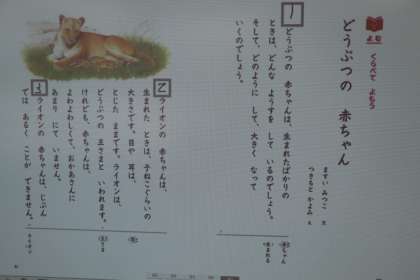 よむ
くらべて よもう
どうぶつの 赤ちゃん
ますい みつこ 文
1
どうぶつの 赤ちゃんは、生まれたばかりの
ときは、どんな ようすを して いるのでしょう。
そして、どのように して、大きく なって
いくのでしょう。
2
ライオンの 赤ちゃんは、
生まれた ときは、子ねこぐらいの
大きさです。目や 耳は、
とじた ままです。ライオンは、
どうぶつの 王さまと いわれます。
けれども、赤ちゃんは、
よわよわしくて、おかあさんに
あまり にて いません。
3
ライオンの 赤ちゃんは、じぶん
では あるく ことが できません。
ライオン